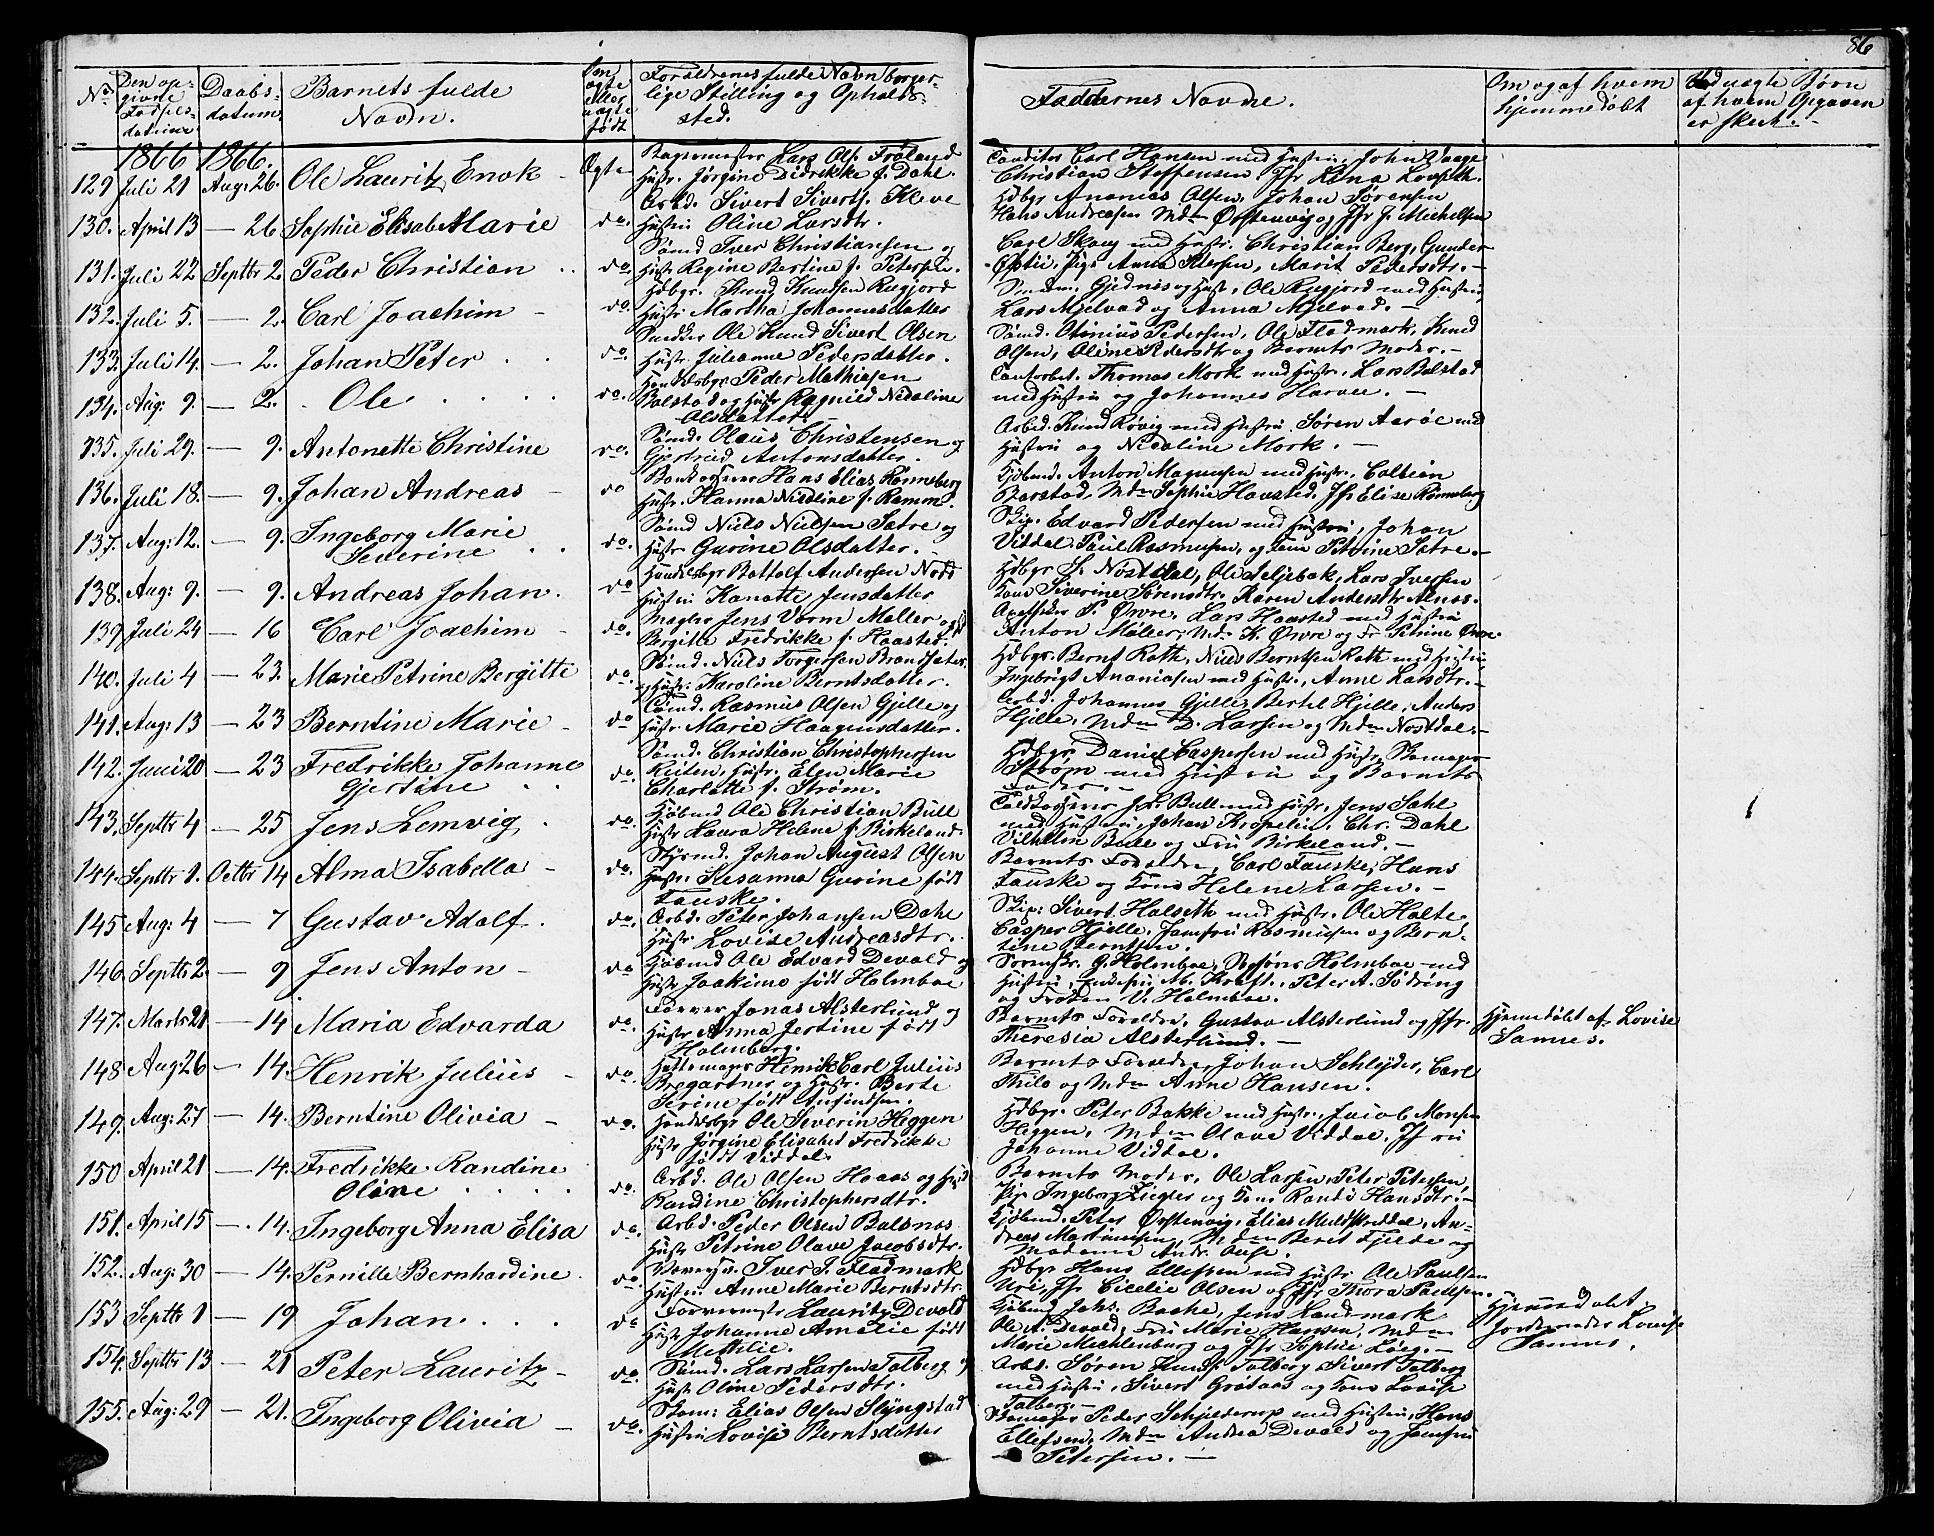 86
No
Den op-
givne
Fødsels-
datum
Daabs-
datum
Barnets fulde
Navn.
Om
ægte
eller
uægte
født
Forældrenes fulde Navn borger-
lige Stilling og Opholds-
sted.
Faddernes Navne.
Om og af hvem
hjemmedøbt
Ved uægte Børn
af hvem Opgaven
er skeet.
1866 1866.
129 Juli 21 Aug: 26. Ole Lauritz Enok Ægte
Lars Ols. Frøland
Hustr. Jørgine Didrikke f. Dahl.
Conditor Carl Hansen med Hustru, John Vaage
Christian Steffensen, Jfr Lena
130. April 13 — 26 Sophie Elisab Marie do
Arbd. Sivert Siverts. Kleve
Hustru Oline Larsdtr.
Hdbgr Ananias Olsen, Johan Sørensen
Hans Andreasen Mdm Ørstenvig og Jfr J. Michelsen
131. Juli 22 Septbr 2. Peder Christian do
Sømd Iver Christiansen og
Hustr Regine Bertine f. Petersen.
Carl Skoug med Hustr. Christian Berg, Gunder
Pige Anna Petersen, Marit Pedersdtr.
132. Juli 5. — 2. Carl Joachim do
Hdbgr. Knud Knudsen
Hustr Martha Johannesdatter
Gjednes og Hustr, Ole med Hustru
Lars Mjelvad og Anna Mjelvad.
133. Juli 14. — 2. Johan Peter do.
Ole Knud Sivert Olsen
Hustr. Julianne Pedersdatter.
Sømd. Olinius Pedersen, Ole Fladmark, Knud
Olsen, Oline Pedersdtr og Barnets Moder.
134. Aug: 9. — 2. Ole do.
Handelsbgr Peder Mathiasen
Bolstad og Hustr Ragnild Nicoline
Olsdatter
Thomas Mork med Hustr, Lars Bolstad
med Hustru og Johannes
135. Juli 29. — 9. Antonette Christine do.
Sømd. Olaus Christensen og
Gjertrud Antonsdatter.
Arbd. Knud Røvig med Hustru, Søren Aarøe med
Hustru og Nicoline Mork.
136. Juli 18. — 9. Johan Andreas do
Hans Elias Rønneberg
Hustr. Hanna Nicoline f. Ramm.
Kjøbmd. Anton Magnusen med Hustr.
Mdm Sophie Havsted, Jfr Elise Rønneberg
137. Aug: 12. — 9. Ingeborg Marie
Severine do.
Sømd Niels Nielsen Sætre og
Hustr Gurine Olsdatter.
Skip. Edvard Pedersen med Hustru, Johan
Viddal Paul Rasmusen, og Petrine Sætre.
138. Aug: 9. — 9. Andreas Johan. do
Handelsbgr Bottolf Andersen
Hustru Kanutte Jensdatter
Hdbgr S. Nøstdal, Ole Seljebak, Lars Iversen
Kone Siverine Sørensdtr, Karen Andersdtr
139 Juli 24 — 16 Carl Joachim do.
Mægler Jens Vorm Møller og
Bergitte Fredrikke f. Haasted.
Apotheker P. Øvre, Lars Haasted med Hustru
Anton Møller, Mdm K. Øvre og Fr Petrine Øvre
140. Juli 4 — 23. Marie Petrine Bergitte do.
Sømd. Niels Torgersen Brandsæter
og Hustr: Karoline Berntsdatter.
Hdbgr. Bernt Roth, Niels Berntsen Roth med Hustru
Ingebrigt Ananiasen med Hustr., Anne Larsdtr.
141. Aug: 13 — 23 Berntine Marie do
Sømd. Rasmus Olsen Gjelle og
Hustr. Marie Haagensdatter.
Arbd. Johannes Gjelle, Bertel Hjelle, Anders
Hjelle, Mdm D. Larsen og Mdm Nøstdal.
142. Juni 20 — 23 Fredrikke Johanne
Gjertine do.
Sømd. Christian Christophersen
Reiten, Hustr. Elen Marie
Charlotte f. Strøm.
Hdbgr Daniel Caspersen med Hustr Skomager
Strøm med Hustru og Barnets
Fader.
143. Septbr 4 — 25 Jens Lemvig do.
Kjøbmd Ole Christian Bull
Hustr Laura Helene f. Birkeland.
Bull med Hustr. Jens Dahl
med Hustru, Johan Kropelin, Chr. Dahl
Vilhelm Bull og Fru Birkeland.
144. Septbr 1. Octbr 14 Alma Isabella do.
Styrmd. Johan August Olsen
Hustr. Susanna Gurine født
Fauske.
Barnets Forældre, Carl Fauske, Hans
Fauske og Kone Helene Larsen.
145 Aug: 4 — 7 Gustav Adolf. do.
Arbd. Peter Johansen Dahl
Hustr Lovise Andreasdtr.
Skip: Sivert Halseth med Hustr. Ole Holte
Casper Hjelle, Jomfru Rasmusen og Bernt-
tine Berntsen.
146. Septbr 2. — 9 Jens Anton do
Kjøbmd Ole Edvard Devold og
Hustr Joakime født Holmboe
G. Holmboe, Holmboe med
Hustru, M. Kraft, Peter A. Sødring
og Frøken V. Holmboe.
147. Marts 21 — 14 Maria Edvarda do.
Farver Jonas Alsterlund og
Hustr Anna Jertine født
Holmberg.
Barnets Forældre, Gustav Alsterlund og Jfr.
Theresia Alsterlund.
Hjemmedøbt af Lovise
Samnes.
148 Aug 26 — 14. Henrik Julius do.
Hattemager Henrik Carl Julius
Bregartner og Hustr. Berte
Serine født
Barnets Forældre, Johan Schleyder, Carl
Thilo og Mdm Anne Hansen.
149. Aug: 27 — 14. Berntine Olivia do.
Handelsbgr Ole Severin Heggen
Hustr Jørgine Elisabet Fredrikke
født Viddal.
Hdbgr. Peter Bakke med Hustr., Jacob Monsen
Heggen, Mdm Olave Viddal, Jfru
Johanne Viddal.
150 April 21 — 14. Fredrikke Randine
Oline do.
Arbd. Ole Olsen Haaas og
Randine Christophersdtr.
Barnets Moder, Ole Larsen, Peter Petersen,
Pige Ingeborg Ziegler og Kone Randi Hansdtr.
151. April 15 — 14. Ingeborg Anna Elisa do
Arbd. Peder Olsen Balsnæs
Hustr Petrine Olave Jacobsdtr.
Kjøbmd. Peter Ørstenvig, Elias Muldskreddal, An-
dreas Martinusen, Mdm Beret Fjelde og
Madame Andr.
152. Aug: 30 — 14. Pernille Bernhardine do
Iver J. Fladmark
Hustru Anne Marie Berntsdtr.
Hdbgr Hans Ellefsen med Hustr Ole Paulsen
Uri, Jfr Cicelie Olsen og Jfr Thora Paulsen.
153 Septbr 1 — 19 Johan do
Lauritz Devold
Hustr Johanne Amalie født
Metilie.
Kjøbmd Johs. Bache, Jens Landmark
Ole A. Devold, Fru Marie Hansen, Mdm
Marie Mechlenburg og Jfr Sophie Løeg.
Hjemmedøbt,
Jordemoder Lovise
Samnes.
154. Septbr 13 — 21 Peter Lauritz do.
Sømd. Lars Larsen Talberg og
Hustr Oline Pedersdtr.
Arbd. Søren Knuds. Talberg, Sivert Talberg
med Hustru, Sivert Grøtaas og Kone Lovise
Talberg.
155. Aug: 29 — 21. Ingeborg Olivia do.
Skom: Elias Olsen Slyngstad
Hustru Lovise Berntsdatter
Skomager Peder Schjelderup med Hustru, Hans
Ellefsen, Mdm Andrea Devold og Jomfru
Petersen.